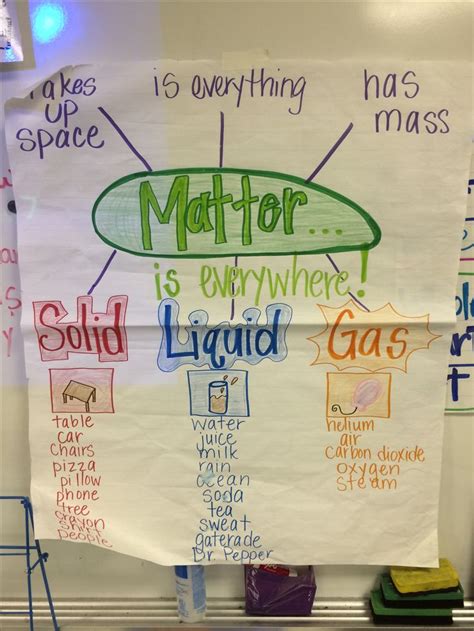 takes up space
is everything
has mass
Matter...
is everywhere!
Solid
table
car
chairs
pizza
pillow
phone
tree
crayon
shirt
people
Liquid
water
juice
milk
rain
ocean
soda
tea
sweat
gaterade
Dr. Pepper
Gas
helium
air
carbon dioxide
oxygen
steam